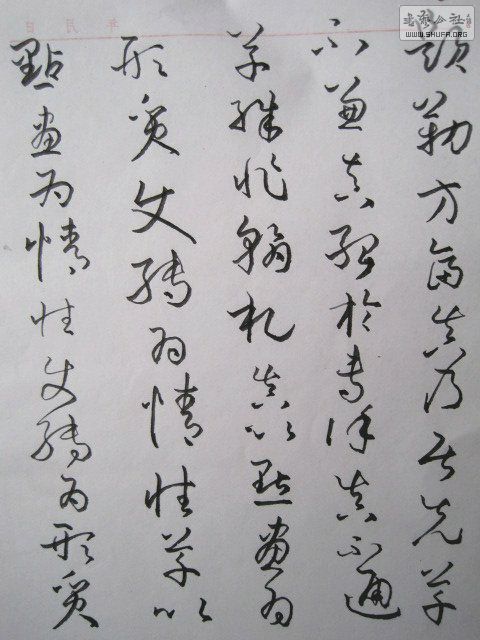 书法公社
WWW.SHUFA.ORG
年 月 日
題勒方畐真乃居先草
不兼真殆於專謹真不通
草殊非翰札真以點畫為
形質使轉為情性草以
點畫為情性使轉為形質